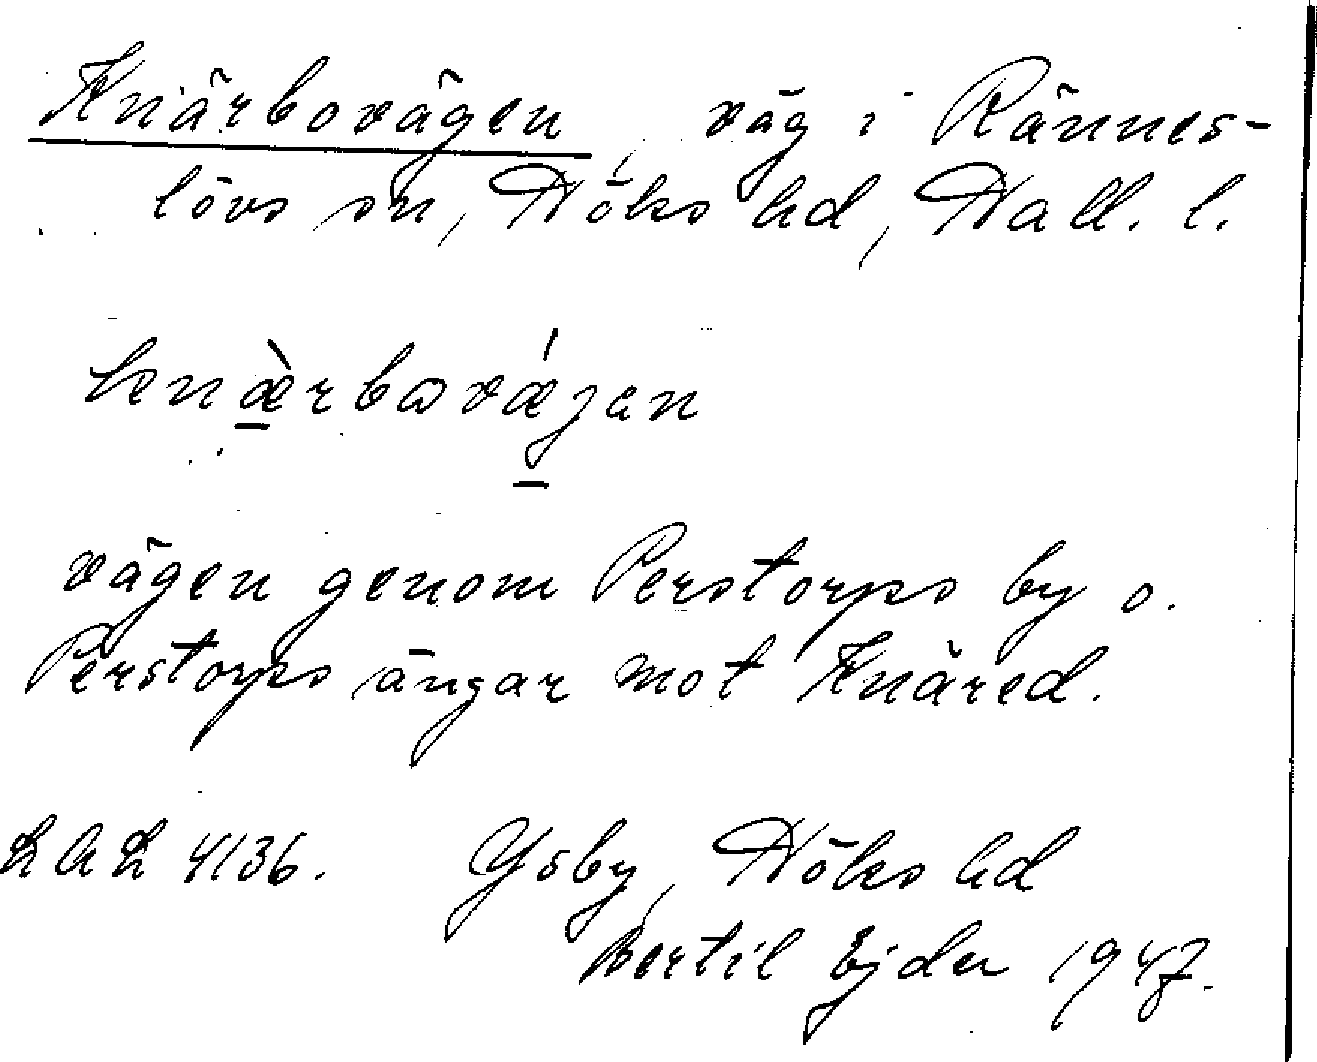 Knärbovägen, väg i Rännes-
lövs sn, Höks hd, Hall. l.
knæ̀rbovǽjen
vägen genom Perstorps by o.
Perstorps ängar mot Knäred.
LAL 4136. Ysby, Höks hd
Bertil Ejder 1947.